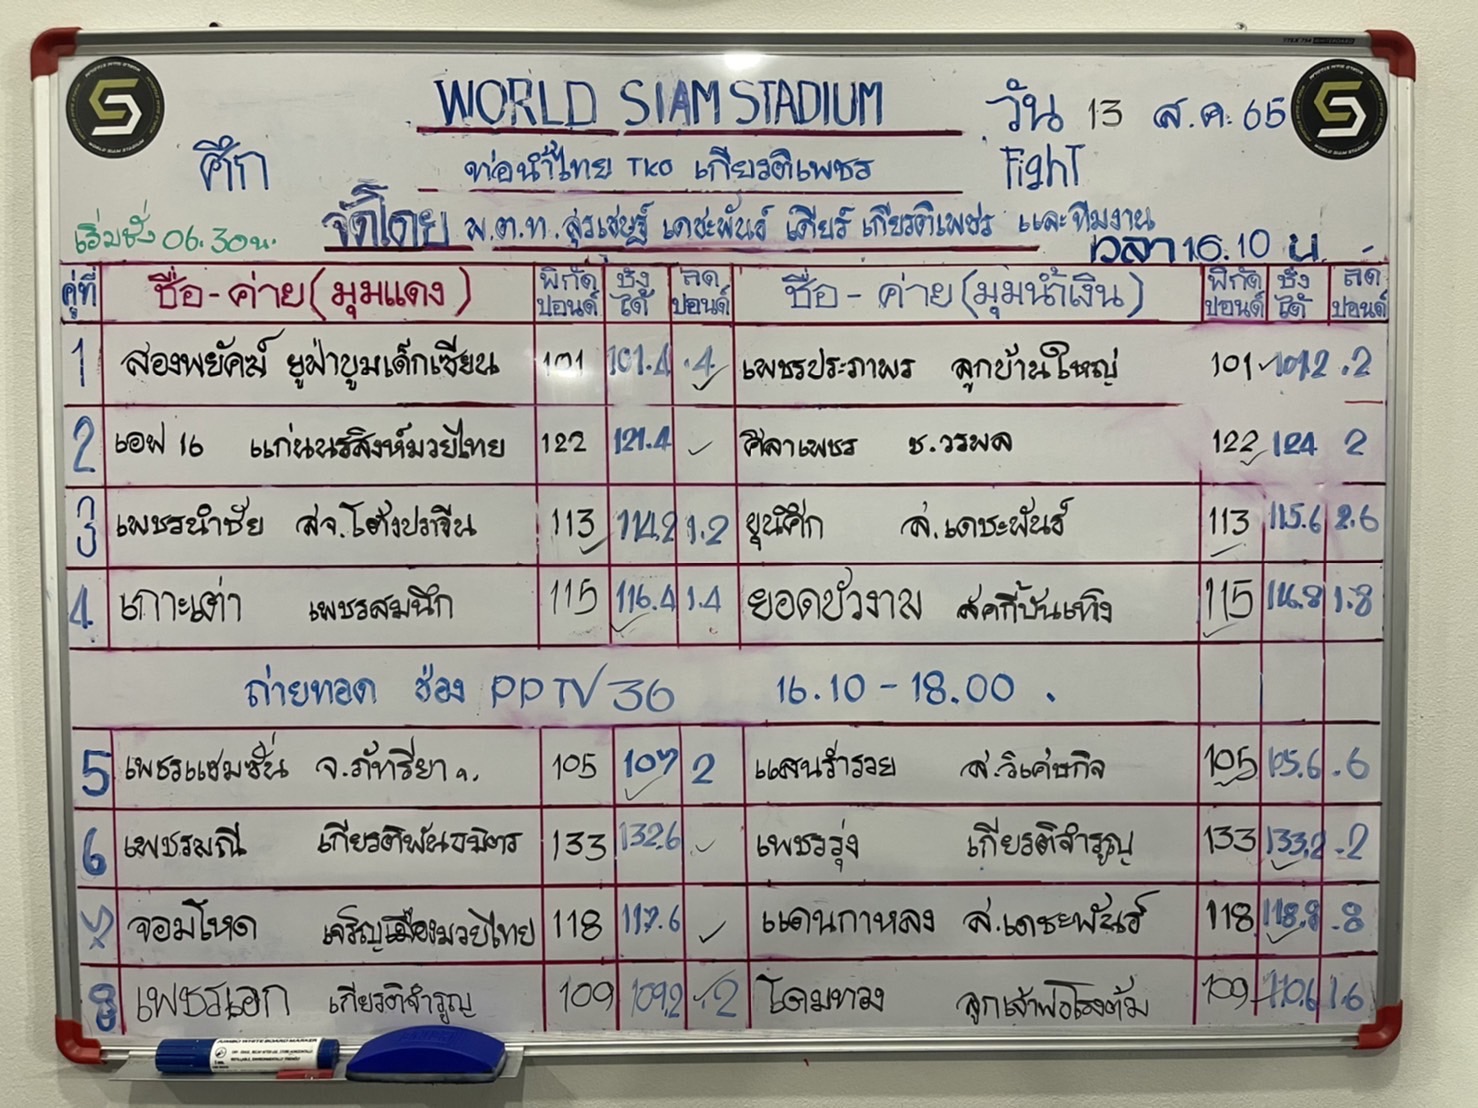 WORLD SIAM STADIUM วัน 13 ส.ค. 65
ศึก ท่อน้ำไทย TKO เกียรติเพชร Fight
เริ่มชั่ง 06.30น. จัดโดย พ.ต.ท. สุรเชษฐ์ เดชะพันธ์ เคียร์ เกียรติเพชร และทีมงาน
เวลา 16.10 น.
คู่ที่ ชื่อ - ค่าย (มุมแดง) พิกัด ปอนด์ ชั่ง ได้ ลด ปอนด์ ชื่อ - ค่าย (มุมน้ำเงิน) พิกัด ปอนด์ ชั่ง ได้ ลด ปอนด์
1 สองพยัคฆ์ ยูฟ่าบูมเด็กเซียน 101 101.4 .4 เพชรประภาพร ลูกบ้านใหญ่ 101 101.2 .2
2 เอฟ 16 แก่นนรสิงห์มวยไทย 122 121.4 ศิลาเพชร ช.วรพล 122 124 2
3 เพชรนำชัย สจ.โต้งปราจีน 113 114.2 1.2 ขุนศึก ส.เดชะพันธ์ 113 115.6 2.6
4 เกาะเต่า เพชรสมนึก 115 116.4 1.4 ยอดบัวงาม 115 116.8 1.8
ถ่ายทอด ช่อง PPTV 36 16.10 - 18.00
5 เพชรแชมชั่น จ.ภัทรียา 105 107 2 แสนร่ำรวย ส.วิเศษกิจ 105 105.6 .6
6 เพชรมณี เกียรติพันธมิตร 133 132.6 เพชรรุ่ง เกียรติจำรูญ 133 133.2 .2
7 จอมโหด เจริญเมืองมวยไทย 118 117.6 แดนกาหลง ส.เดชะพันธ์ 118 118.8 .8
8 เพชรเอก เกียรติจำรูญ 109 109.2 .2 โดมทอง ลูกเจ้าพ่อโรงต้ม 109 110.6 1.6